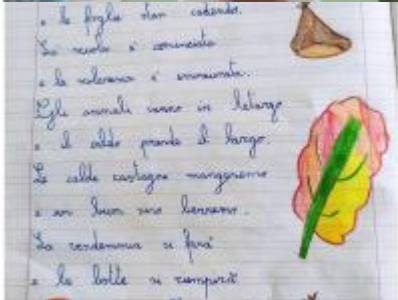 e le foglie stan cadendo.
La scuola è cominciata
e la vacanza è
Gli animali vanno in letargo
e il caldo prende il largo.
Le calde castagne mangeremo
e un buon vino berremo.
La vendemmia si farà
e la botte si riempirà